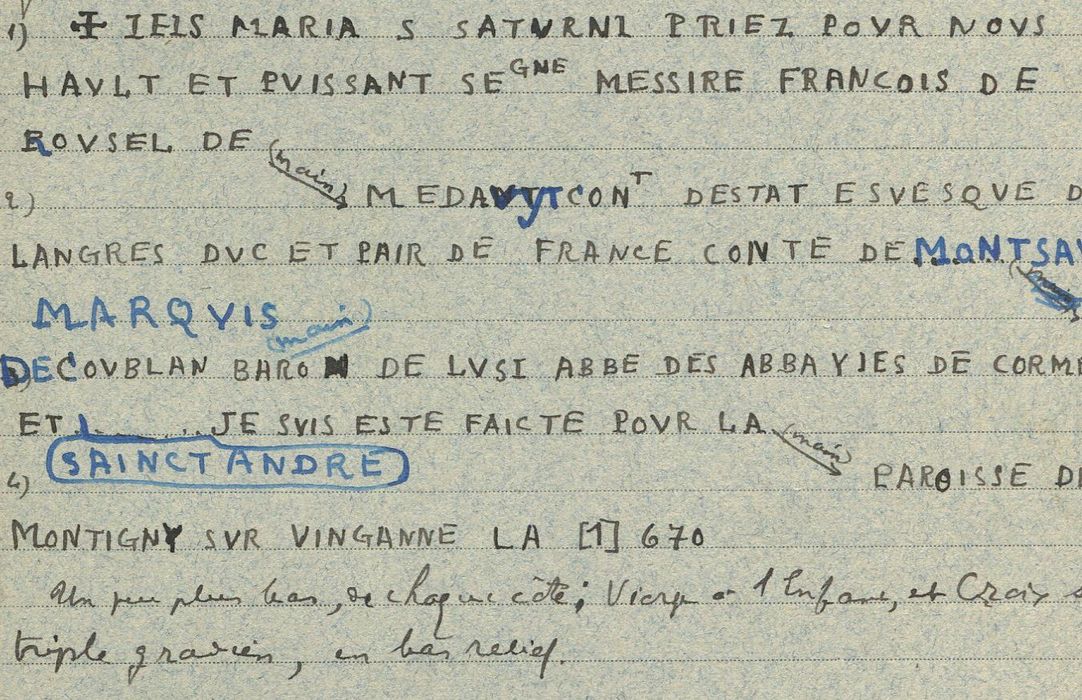 1) ✠ IELS MARIA S SATVRNI PRIEZ POVR NOVS
HAVLT ET PVISSANT SEGNE MESSIRE FRANCOIS DE
ROVSEL DE (main)
2) MEDAVYT CONT DESTAT ESVESQVE D
LANGRES DVC ET PAIR DE FRANCE CONTE DE MONTSAV
MARQVIS (main)
DE COVBLAN BARON DE LVSI ABBE DES ABBAYIES DE CORME
ET ..... JE SVIS ESTE FAICTE POVR LA (main)
SAINCT ANDRE
4) PAROISSE DE
MONTIGNY SVR VINGANNE LA [1] 670
Un peu plus bas, de chaque côté; Vierge à l'Enfant, et Croix
triple gradin, en bas relief.